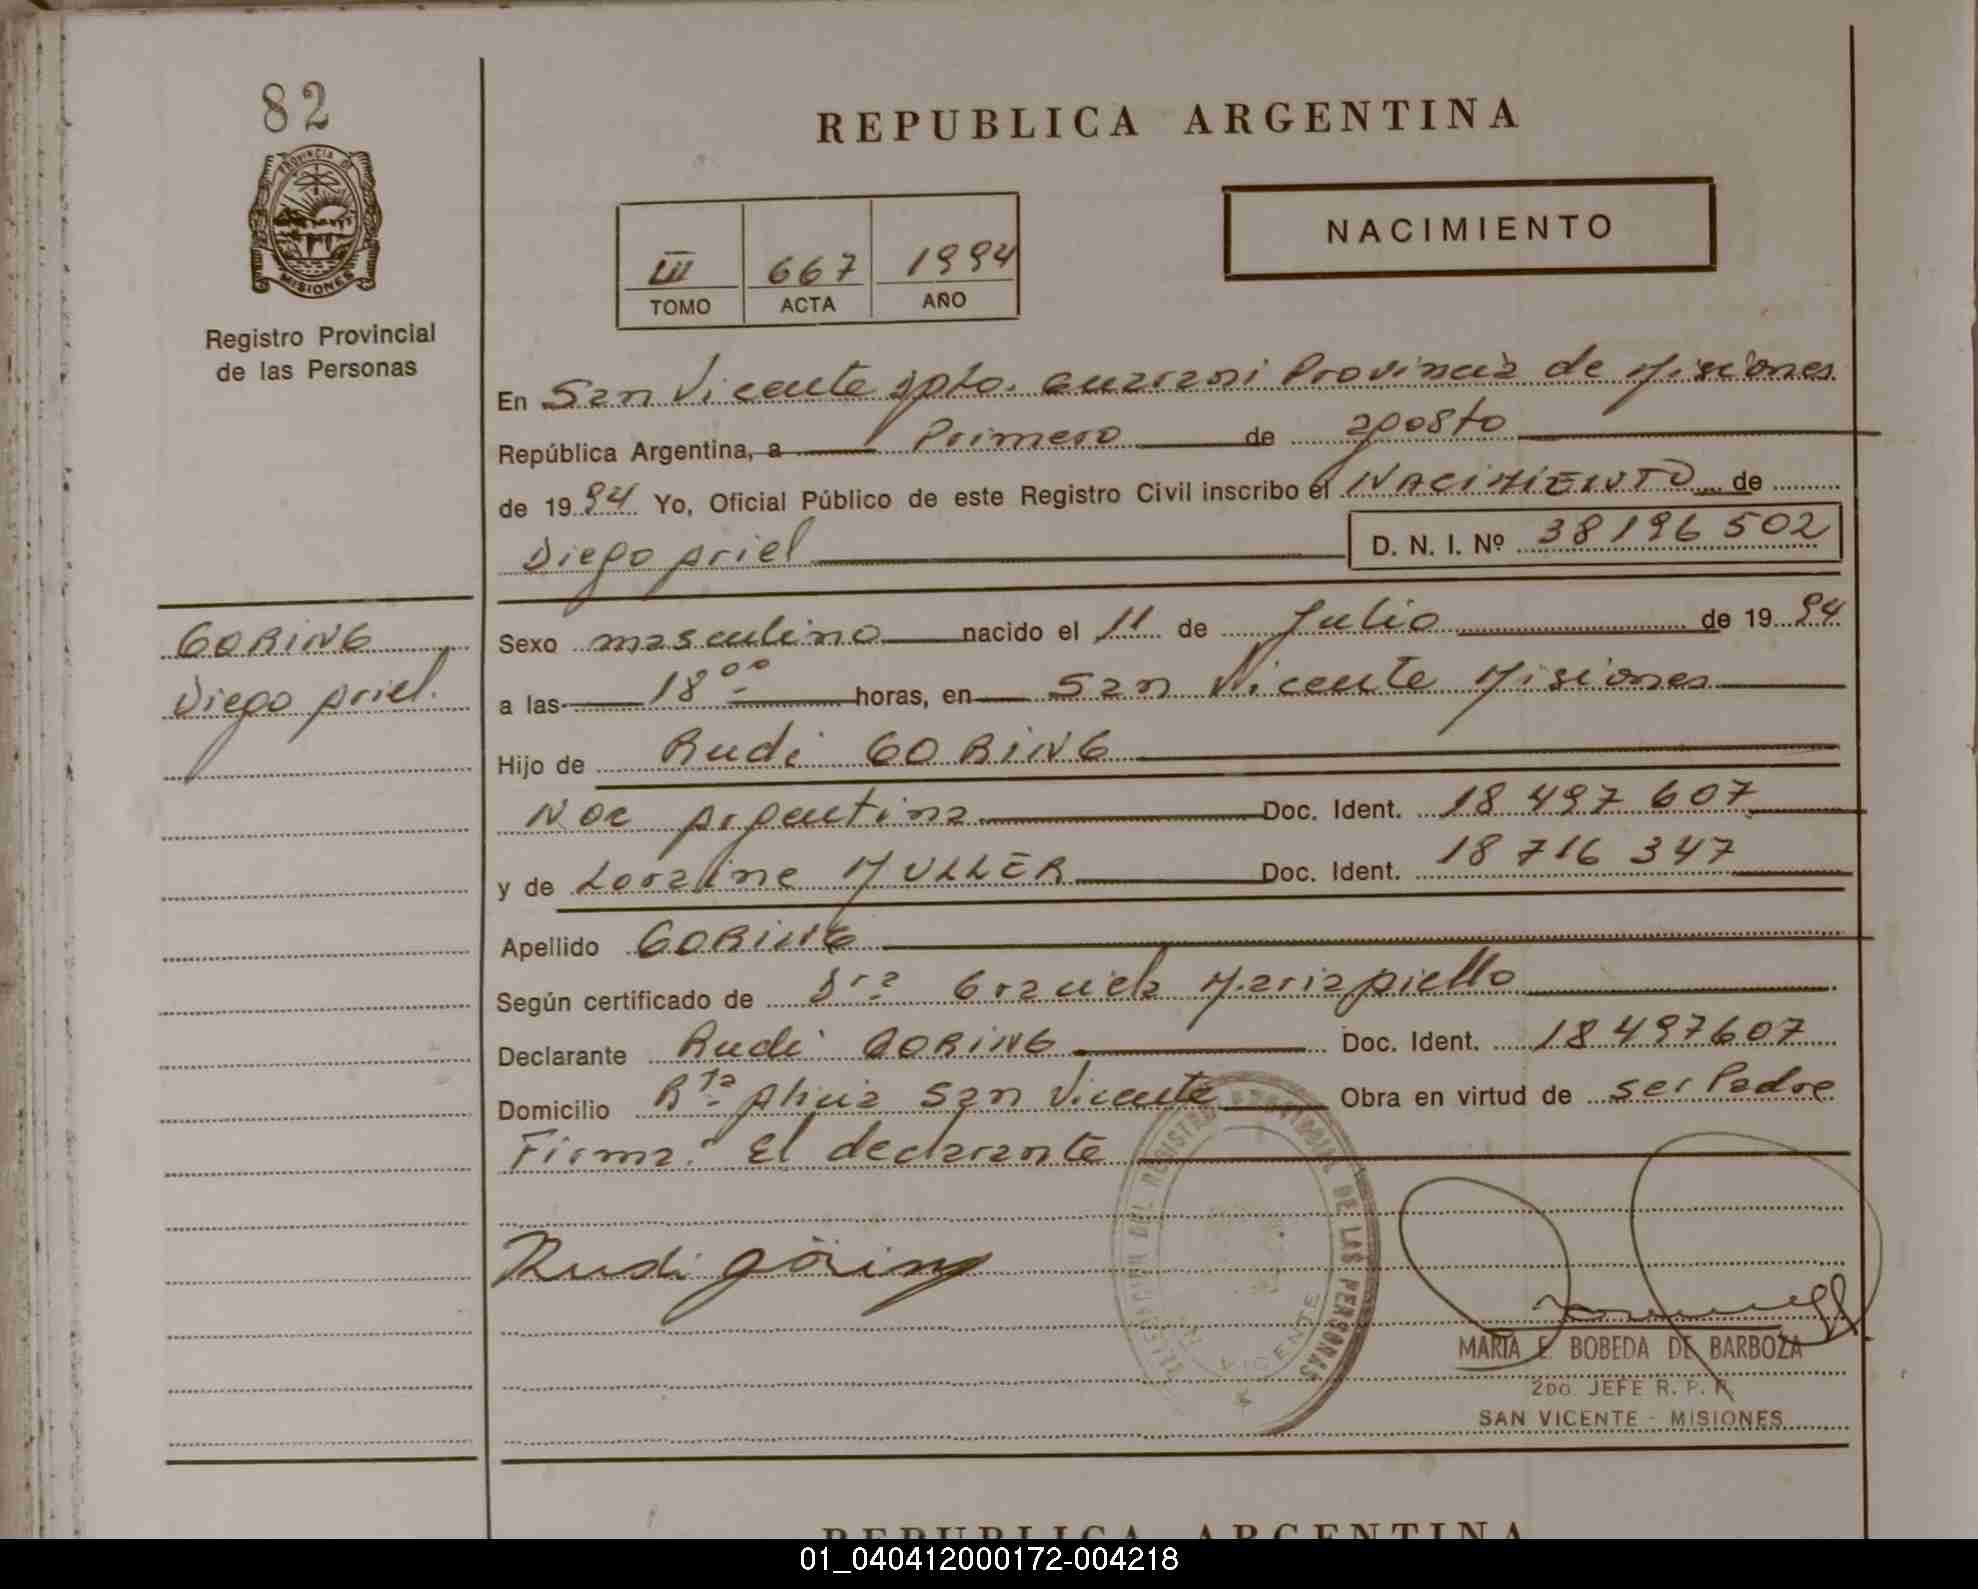 82
PROVINCIA DE
MISIONES
Registro Provincial
de las Personas
REPUBLICA ARGENTINA
NACIMIENTO
III 667 1994
TOMO ACTA AÑO
En San Vicente Dpto. Guarani Provincia de Misiones
República Argentina, a Primero de agosto
de 1994 Yo, Oficial Público de este Registro Civil inscribo el NACIMIENTO de
Diego Ariel D. N. I. Nº 38196502
GORING
Diego Ariel.
Sexo masculino nacido el 11 de Julio de 1994
a las 18ºº horas, en San Vicente Misiones
Hijo de Rudi GORING
Nac Argentina Doc. Ident. 18 497 607
y de Loraine MULLER Doc. Ident. 18 716 347
Apellido GORING
Según certificado de Dra Graciela Mariapiello
Declarante Rudi GORING Doc. Ident. 18497607
Domicilio San Vicente Obra en virtud de ser Padre
Firma: El declarante
Rudi göring
DELEGACION DEL REGISTRO PROVINCIAL DE LAS PERSONAS
SAN VICENTE
MARIA E. BOBEDA DE BARBOZA
2DO. JEFE R. P. P.
SAN VICENTE - MISIONES
REPUBLICA ARGENTINA
01_040412000172-004218